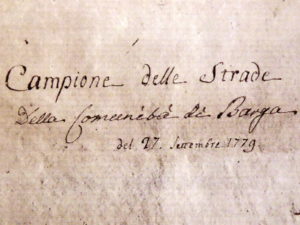 Campione delle Strade
Della Comunità di Barga
del 27. Settembre 1779